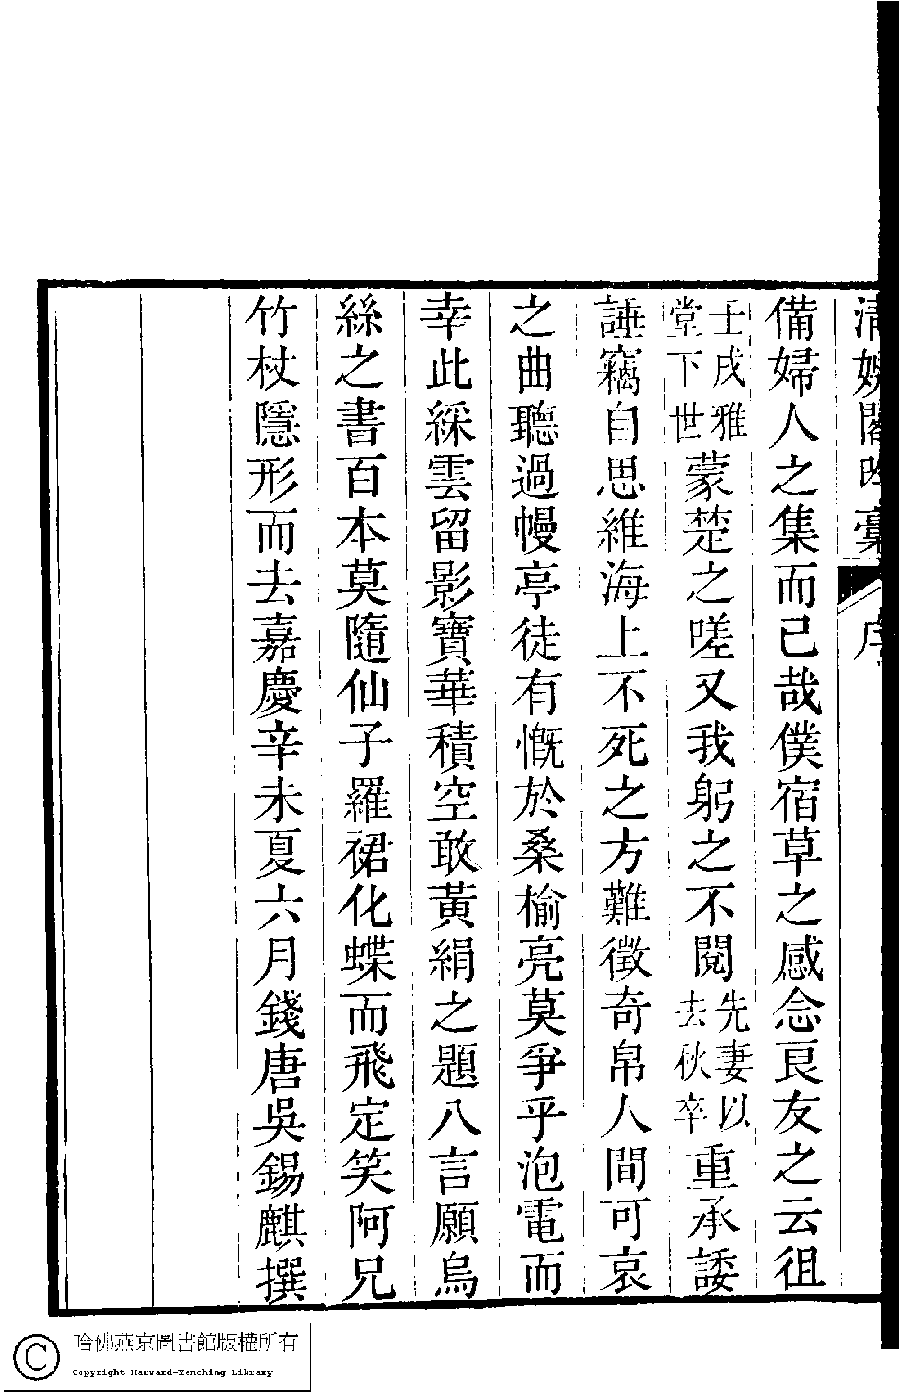 清娛閣吟藳 序
備婦人之集而已哉僕宿草之感念良友之云徂
壬戌雅
堂下世
蒙楚之嗟又我躬之不閱
先妻以
去秋卒
重承諉
諈竊自思維海上不死之方難徵奇帛人間可哀
之曲聽過幔亭徒有慨於桑榆亮莫爭乎泡電而
幸此綵雲留影寶華積空敢黃絹之題八言願烏
絲之書百本莫隨仙子羅裙化蝶而飛定笑阿兄
竹杖隱形而去嘉慶辛未夏六月錢唐吳錫麒撰
哈佛燕京圖書館版權所有
Copyright Harvard-Yenching Library